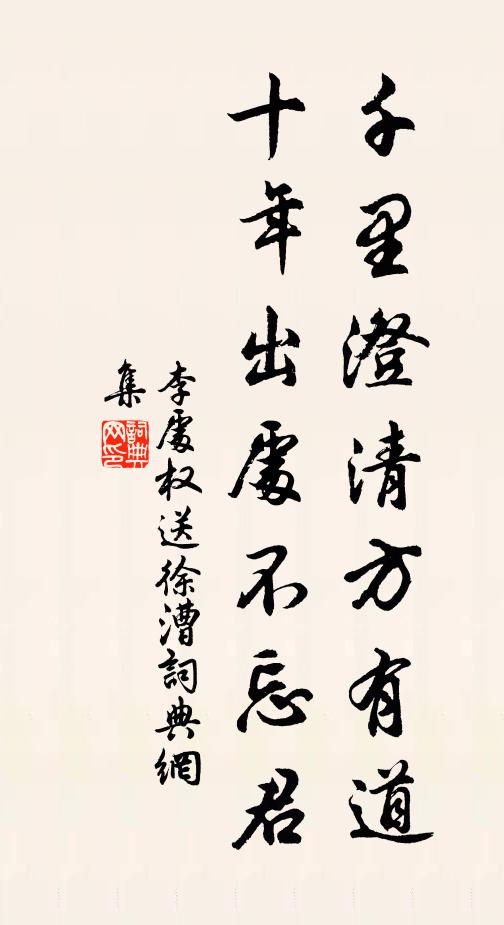 千里澄清方有道
十年出處不忘君
李處權送徐漕詞典網
集
詞典
网印